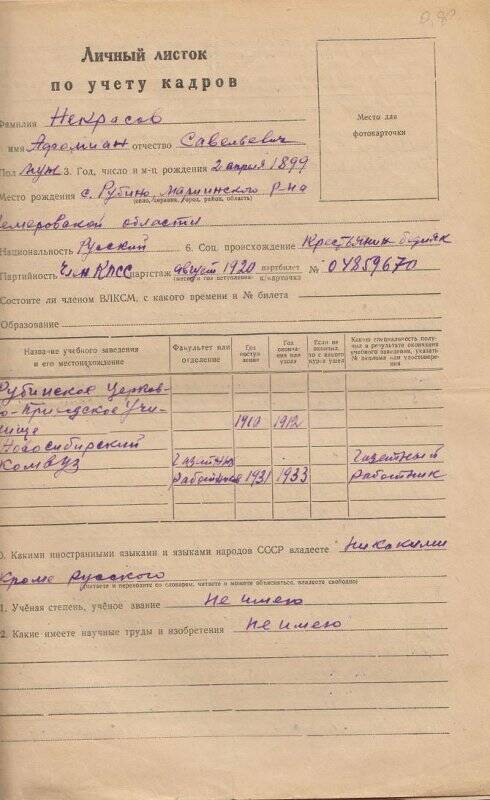 Личный листок
по учету кадров
Место для
фотокарточки
Фамилия Некрасов
имя отчество Савельевич
Пол муж 3. Год, число и м-ц рождения 2 апреля 1899
Место рождения с. Рубино, Мариинского р-на
(село, деревня, город, район, область)
Кемеровской области
Национальность Русский 6. Соц. происхождение Крестьянин бедняк
Партийность член КПСС партстаж август 1920 партбилет № 04859670
(месяц и год вступления) к/карточка
Состоите ли членом ВЛКСМ, с какого времени и № билета
Образование
Название учебного заведения и его местонахождение
Факультет или отделение
Год поступления
Год окончания или ухода
Если не окончил, то с какого курса ушел
Какую специальность получил в результате окончания учебного заведения, указать № диплома или удостоверения
Рубинское Церков-
но-Приходское Учи-
лище 1910 1912
Новосибирский
Комвуз Газетных Газетный
Работников 1931 1933 Работник
0. Какими иностранными языками и языками народов СССР владеете Никакими
Кроме русского
(читаете и переводите со словарем, читаете и можете объясняться, владеете свободно)
1. Учёная степень, учёное звание Не имею
2. Какие имеете научные труды и изобретения Не имею